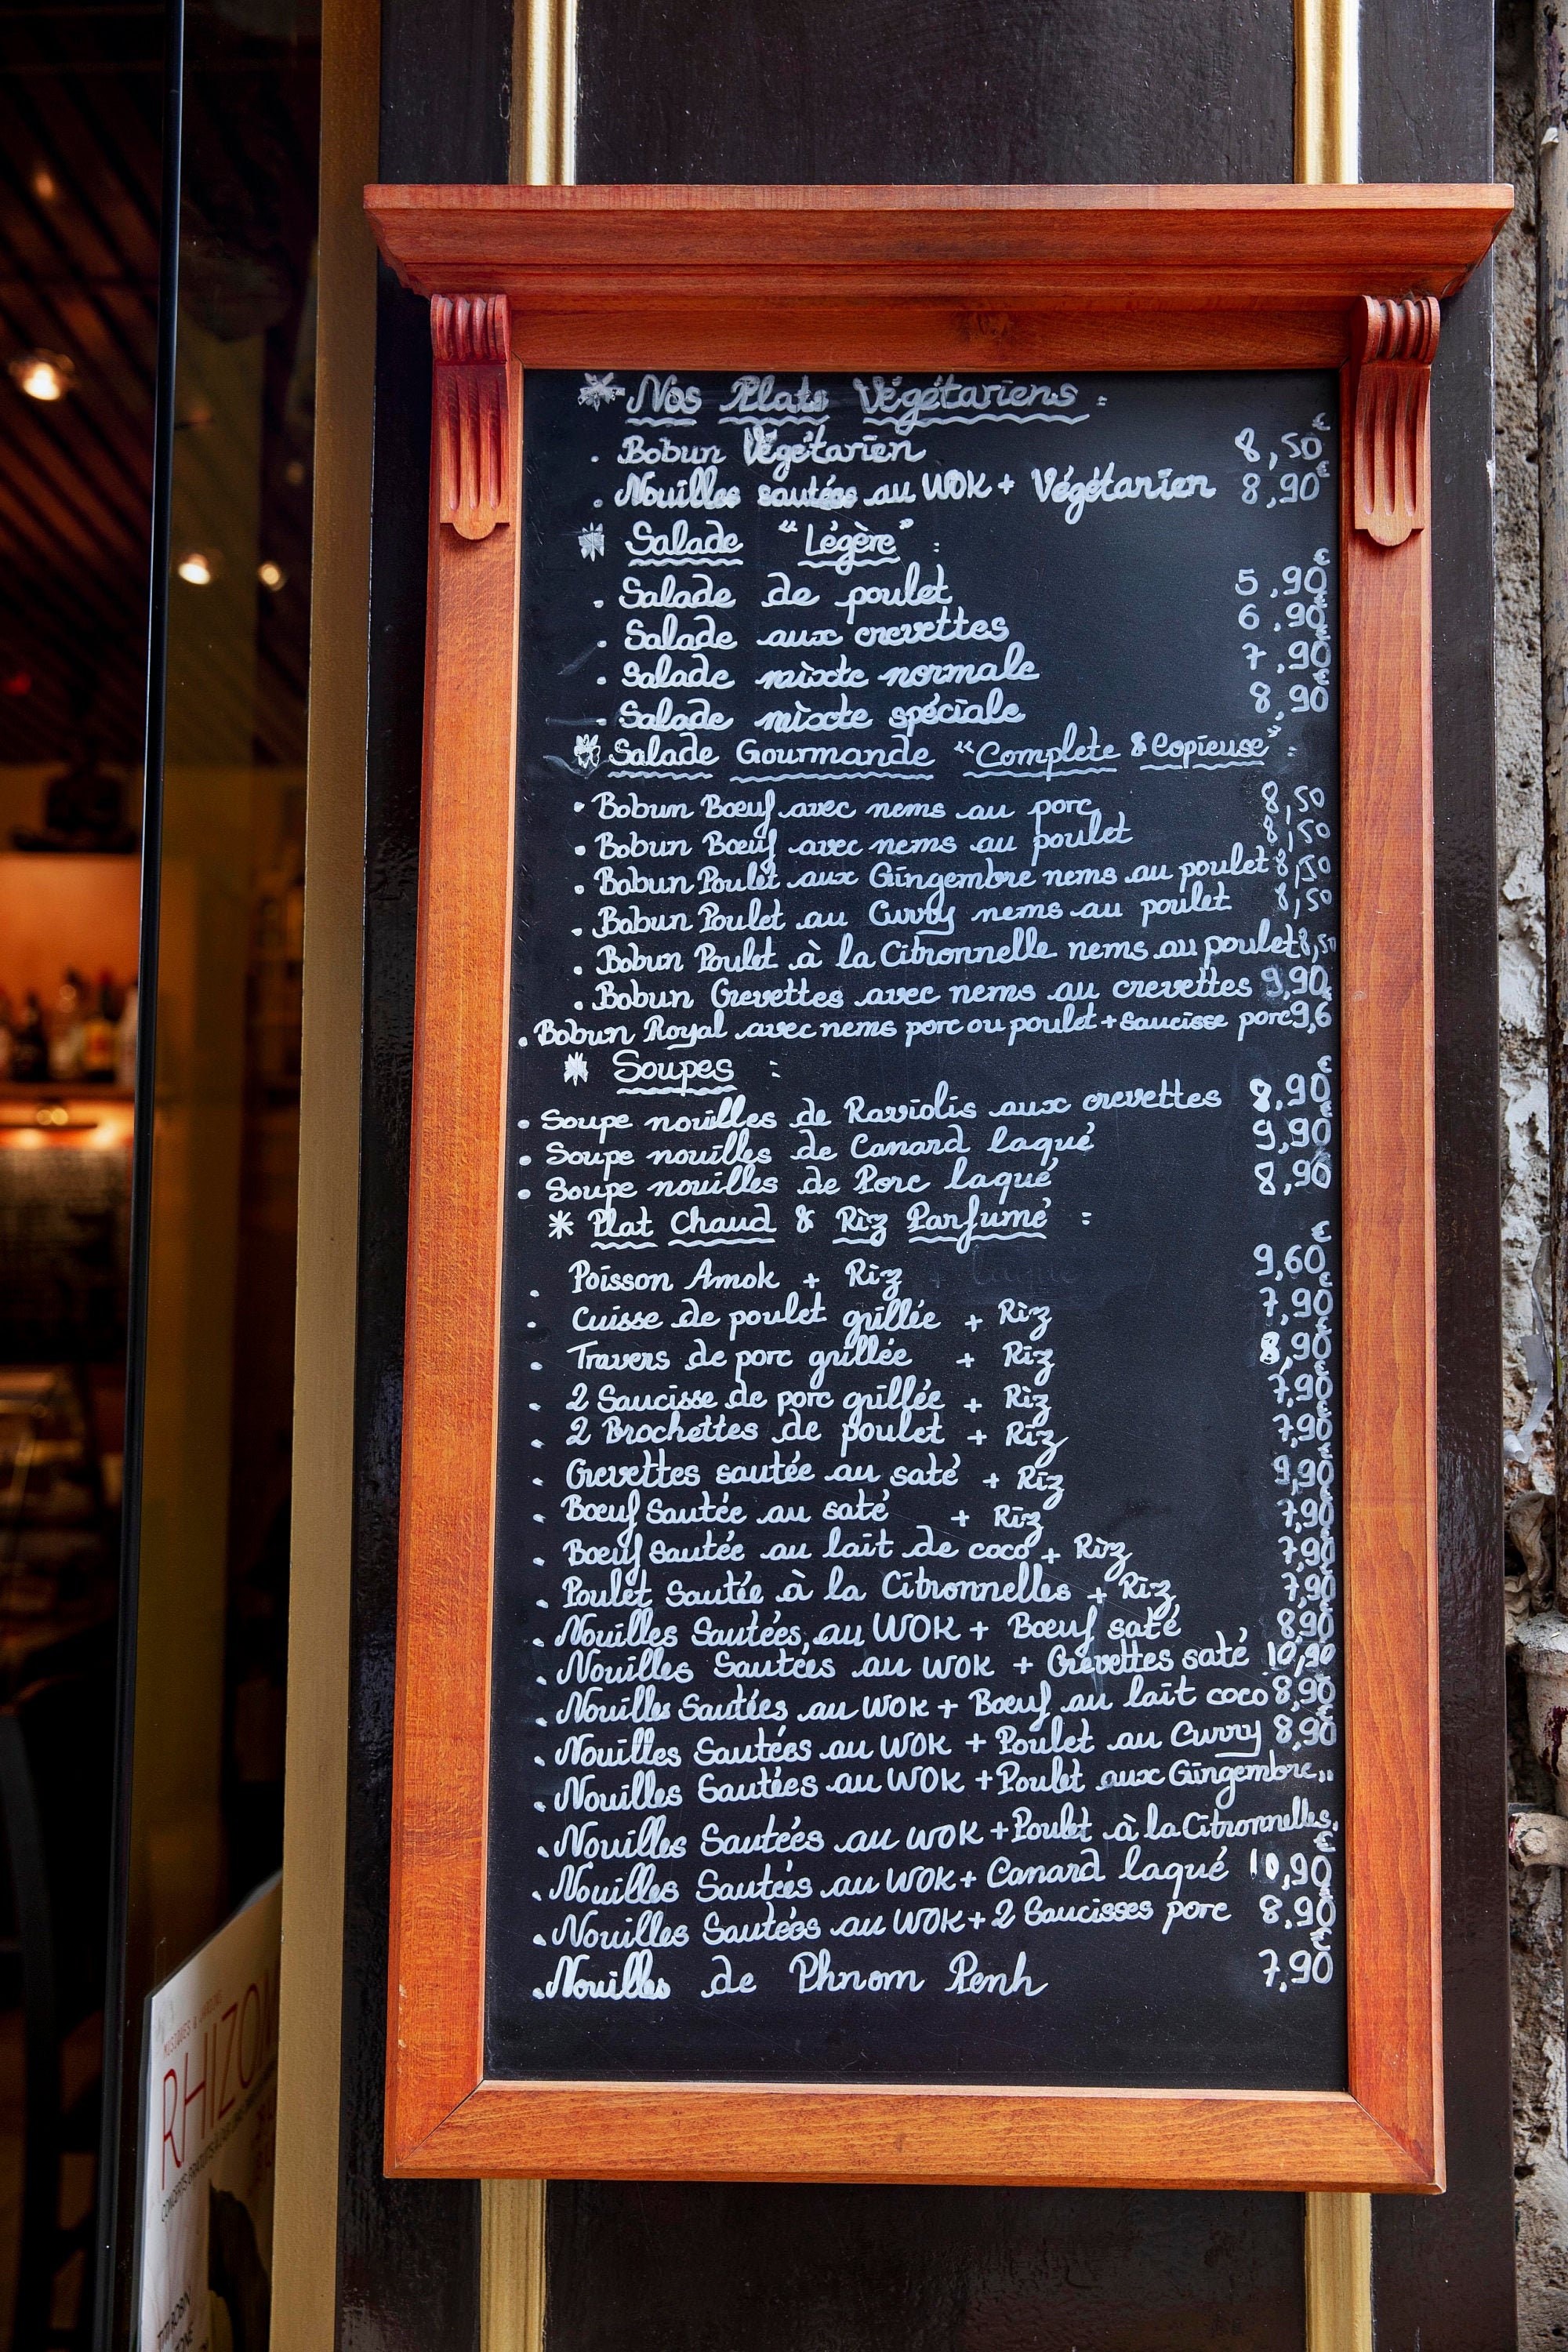 * Nos Plats Végétariens :
. Bobun Végétarien 8,50€
. Nouilles sautées au WOK + Végétarien 8,90€
* Salade "Légère" :
. Salade de poulet 5,90€
. Salade aux crevettes 6,90€
. Salade mixte normale 7,90€
. Salade mixte spéciale 8,90€
* Salade Gourmande "Complete & Copieuse" :
. Bobun Bœuf avec nems au porc 8,50
. Bobun Bœuf avec nems au poulet 8,50
. Bobun Poulet aux Gingembre nems au poulet 8,50
. Bobun Poulet au Curry nems au poulet 8,50
. Bobun Poulet à la Citronnelle nems au poulet 8,50
. Bobun Crevettes avec nems au crevettes 9,90
. Bobun Royal avec nems porc ou poulet + saucisse porc 9,6
* Soupes :
. Soupe nouilles de Raviolis aux crevettes 8,90€
. Soupe nouilles de Canard laqué 9,90€
. Soupe nouilles de Porc laqué 8,90€
* Plat Chaud & Riz Parfumé :
. Poisson Amok + Riz 9,60€
. Cuisse de poulet grillée + Riz 7,90€
. Travers de porc grillée + Riz 8,90€
. 2 Saucisse de porc grillée + Riz 7,90€
. 2 Brochettes de poulet + Riz 7,90€
. Crevettes sautée au saté + Riz 9,90€
. Bœuf Sautée au saté + Riz 7,90€
. Bœuf Sautée au lait de coco + Riz 7,90€
. Poulet Sautée à la Citronnelles + Riz 7,90€
. Nouilles Sautées au WOK + Bœuf saté 8,90€
. Nouilles Sautées au WOK + Crevettes saté 10,90
. Nouilles Sautées au WOK + Bœuf au lait coco 8,90€
. Nouilles Sautées au WOK + Poulet au Curry 8,90€
. Nouilles Sautées au WOK + Poulet aux Gingembre..
. Nouilles Sautées au WOK + Poulet à la Citronnelles.
. Nouilles Sautées au WOK + Canard laqué 10,90€
. Nouilles Sautées au WOK + 2 Saucisses porc 8.90€
. Nouilles de Phnom Penh 7,90€
RHIZO